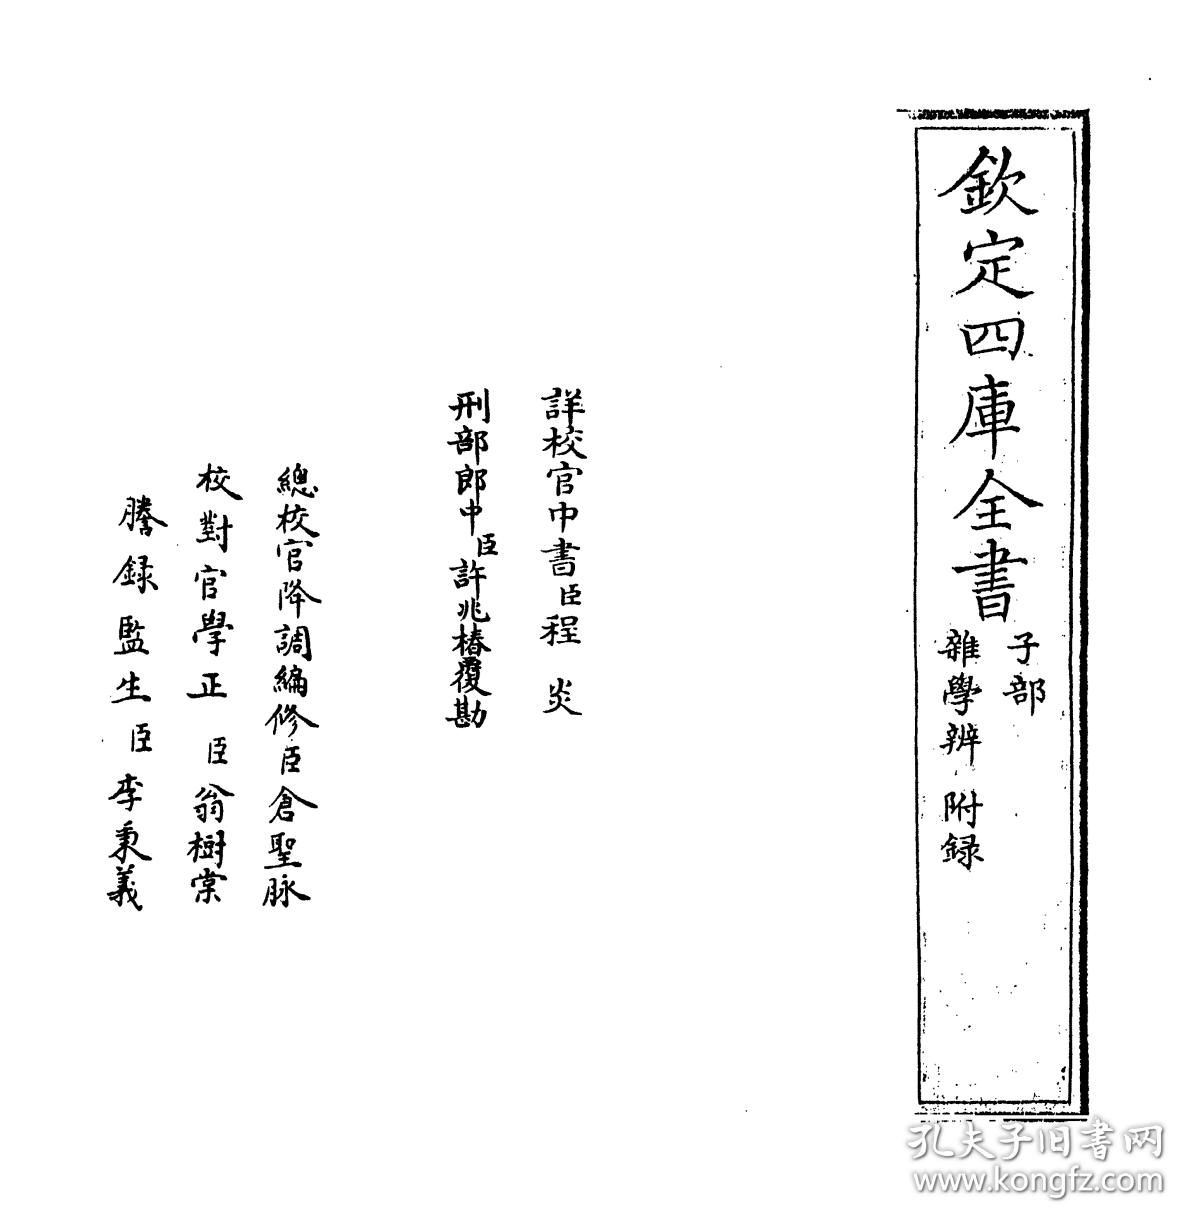 欽定四庫全書
子部
雜學辨 附録
詳校官中書臣程炎
刑部郎中臣許兆椿覆勘
總校官降調編修臣倉聖脉
校對官學正臣翁樹棠
謄録監生臣李秉義
孔夫子旧书网
www.kongfz.com